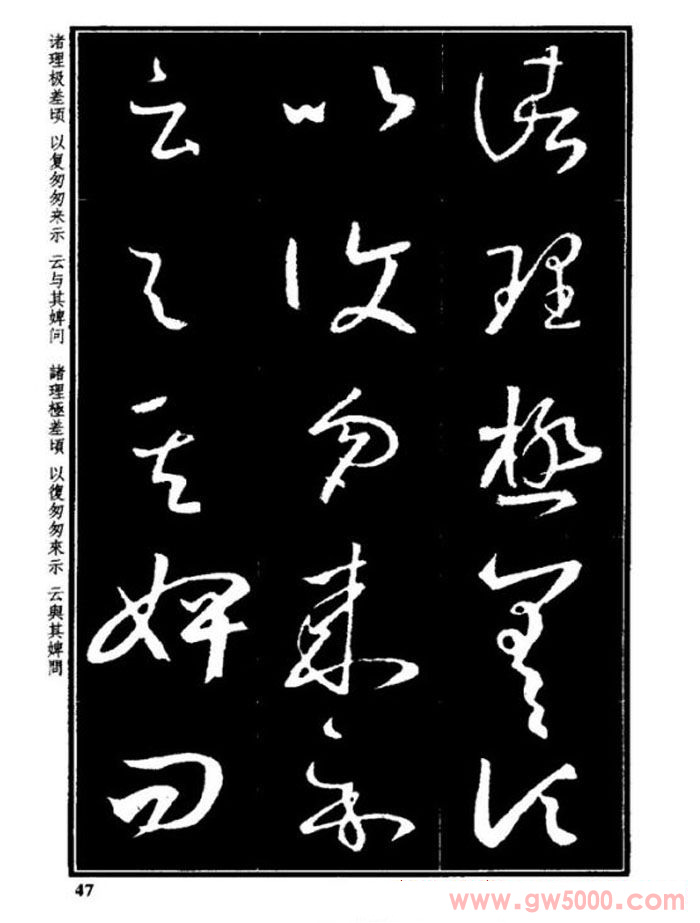 諸理極差頃
以復匆來示
云與其婢問
诸理极差顷 以复匆匆来示 云与其婢问 諸理極差頃 以復匆匆來示 云與其婢問
47
www.gw5000.com